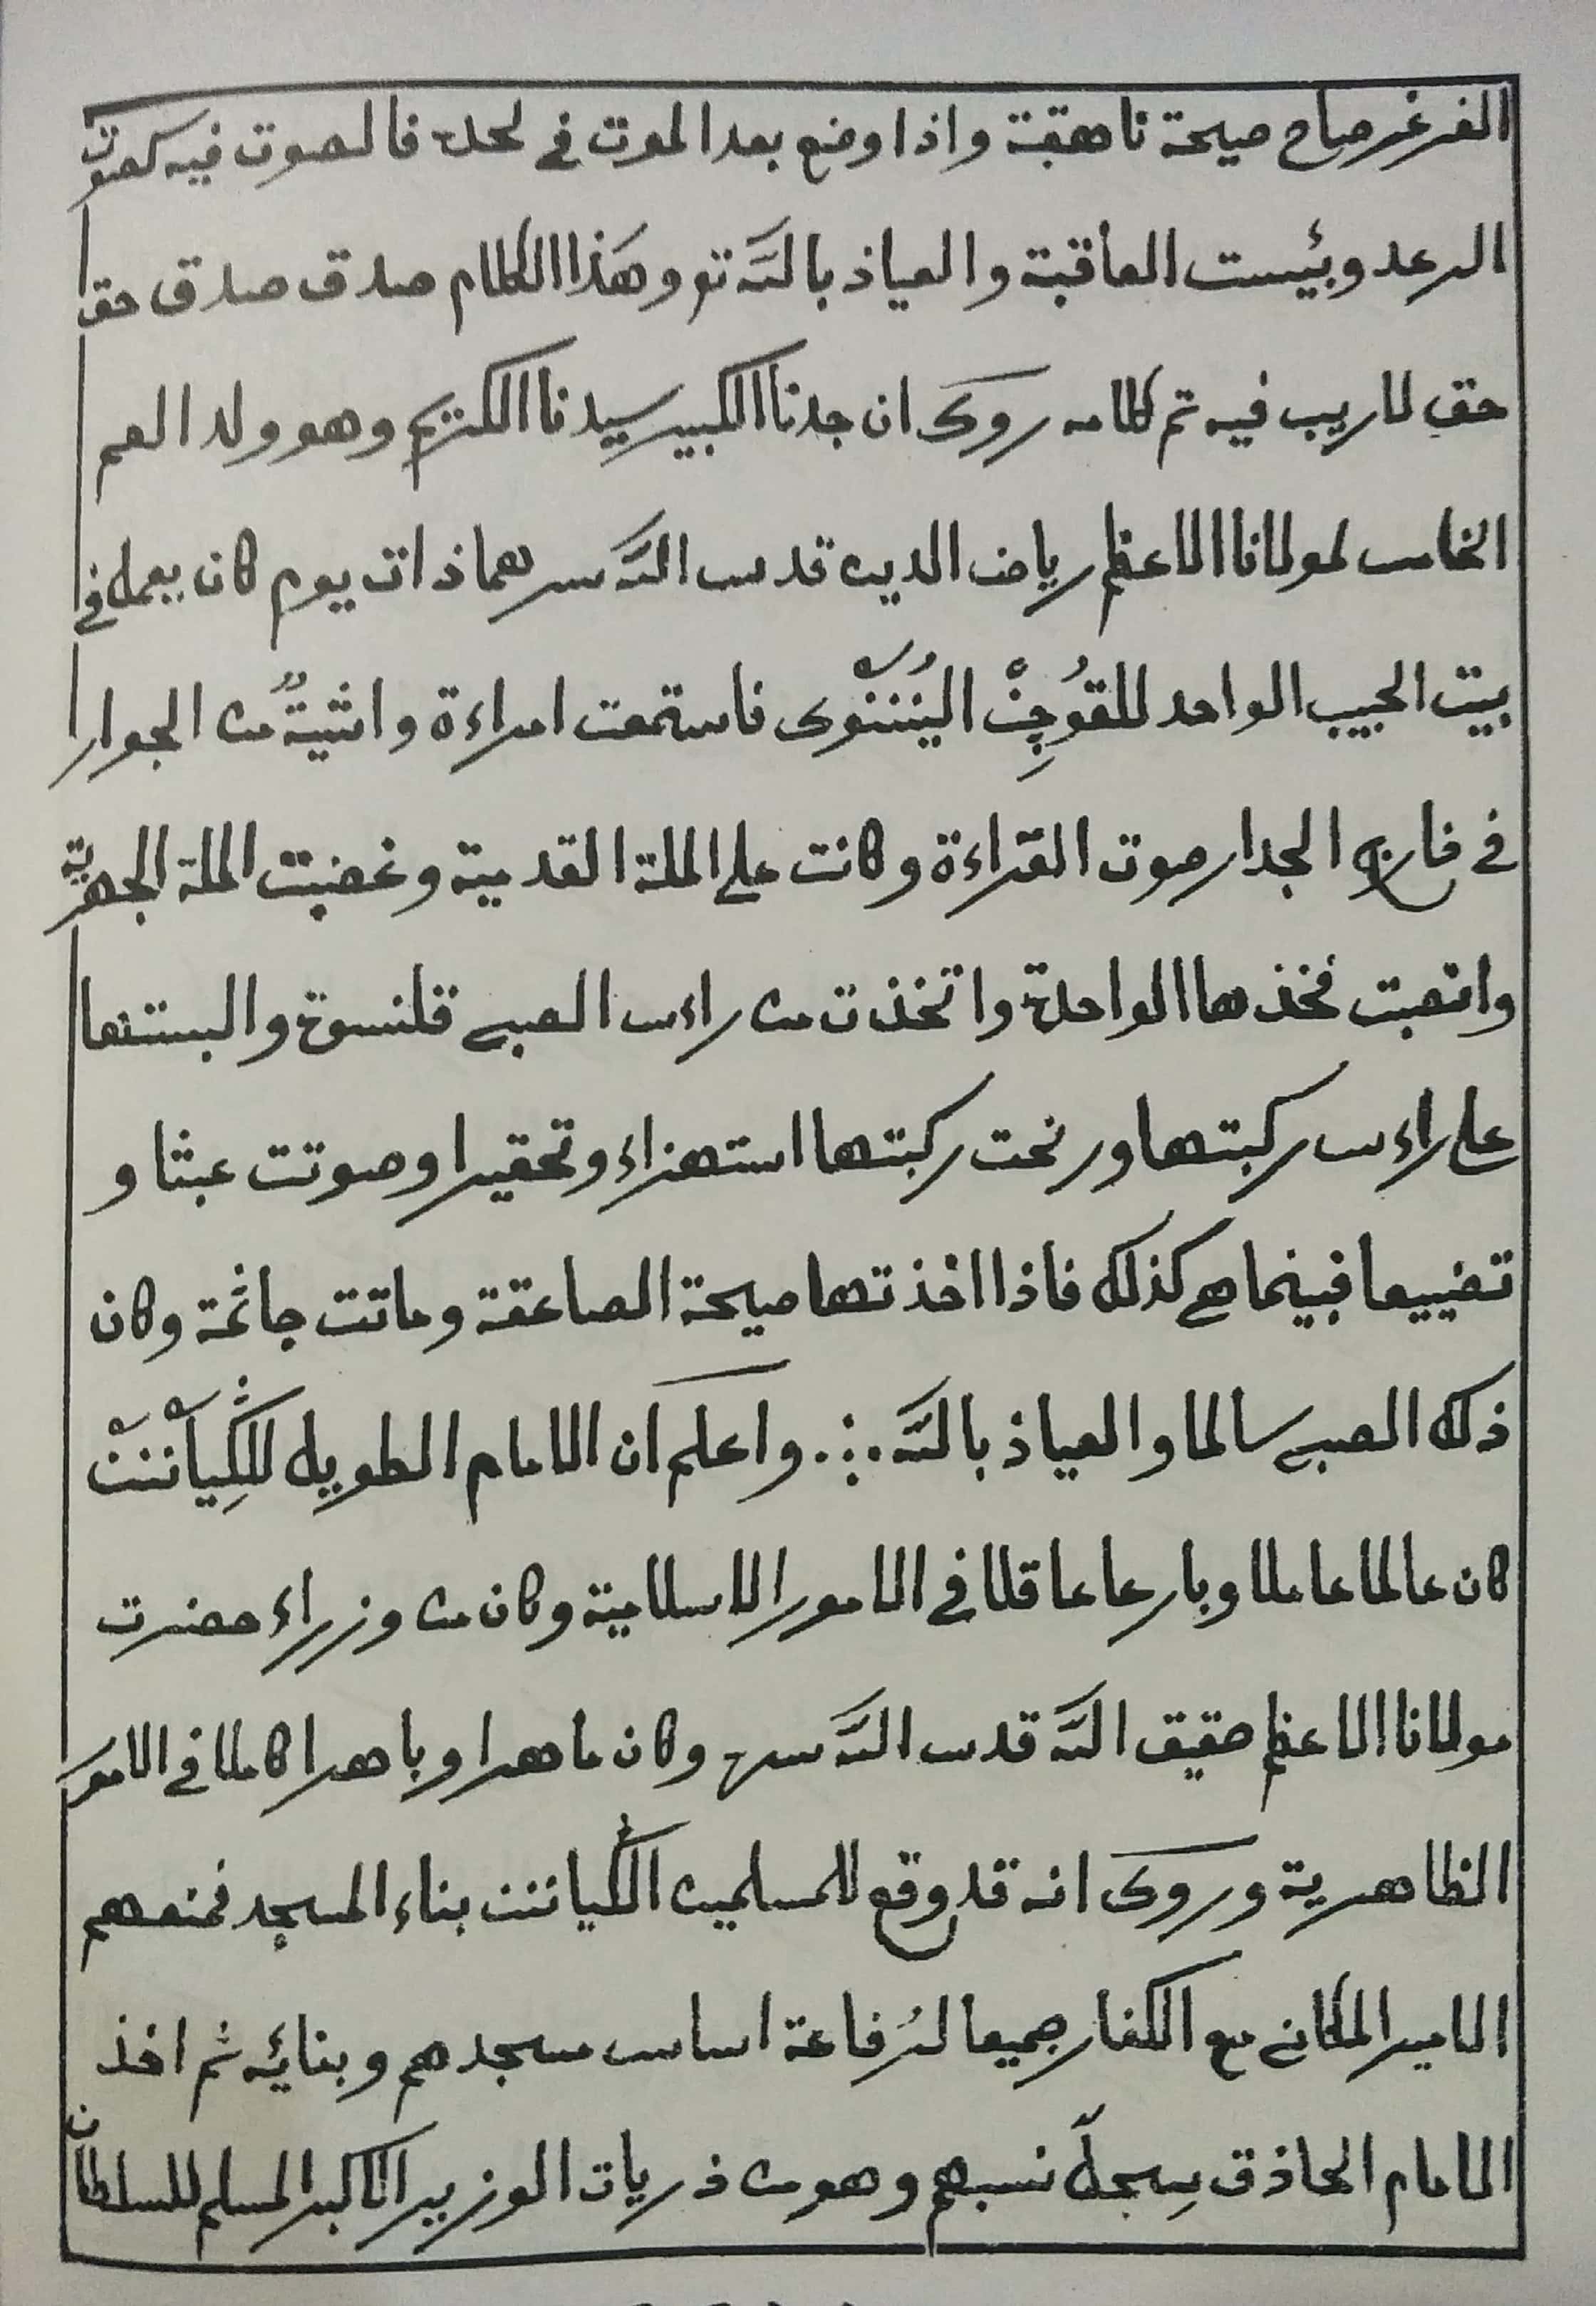 الغرغر صاح صيحة ناهقة واذا وضع بعد الموت في لحده فالصوت فيه كصوت
الرعد وبئيست العاقبة والعياذ بالله تع وهذا الكلام صدق صدق حق
حق لاريب فيه تم كلامه روى ان جدنا الكبير سيدنا الكتريم وهو ولد العم
الخامس لمولانا الاعظم رياض الدين قدس الله سرهما ذات يوم كان يعمل في
بيت الحبيب الواحد للقوجن فاستمعت امراءة واثنية من الجوار
في خارج الجدار صوت القراءة وكانت على الملة القدمية وغضبت الملة الجهرية
وانصبت فخذها الواحدة واتخذت من راءس الصبي قلنسوة والبستها
على راءس ركبتها ورنحت ركبتها استهزاء وتحقيرا وصوتت عبثا و
تضييعا فبينما هي كذلك فاذا اخذتها صيحة الصاعقة وماتت جاثمة وكان
ذلك الصبي سالما والعياذ بالله ∴ واعلم ان الامام الطويل للكيانن
كان عالما عاملا وبارعا عاقلا في الامور الاسلامية وكان من وزراء حضرت
مولانا الاعظم حقيق الله قدس الله سره وكان ماهرا وباهرا كاملا في الامور
الظاهرية وروى انه قد وقع للمسلمين الكيانن بناء المسجد فمنعهم
الامير المكاني مع الكفار جميعا لرفاعة اساس مسجدهم وبنائه ثم اخذ
الامام الحاذق سجل نسبهم وهو من ذريات الوزير الاكبر المسلم للسلطان